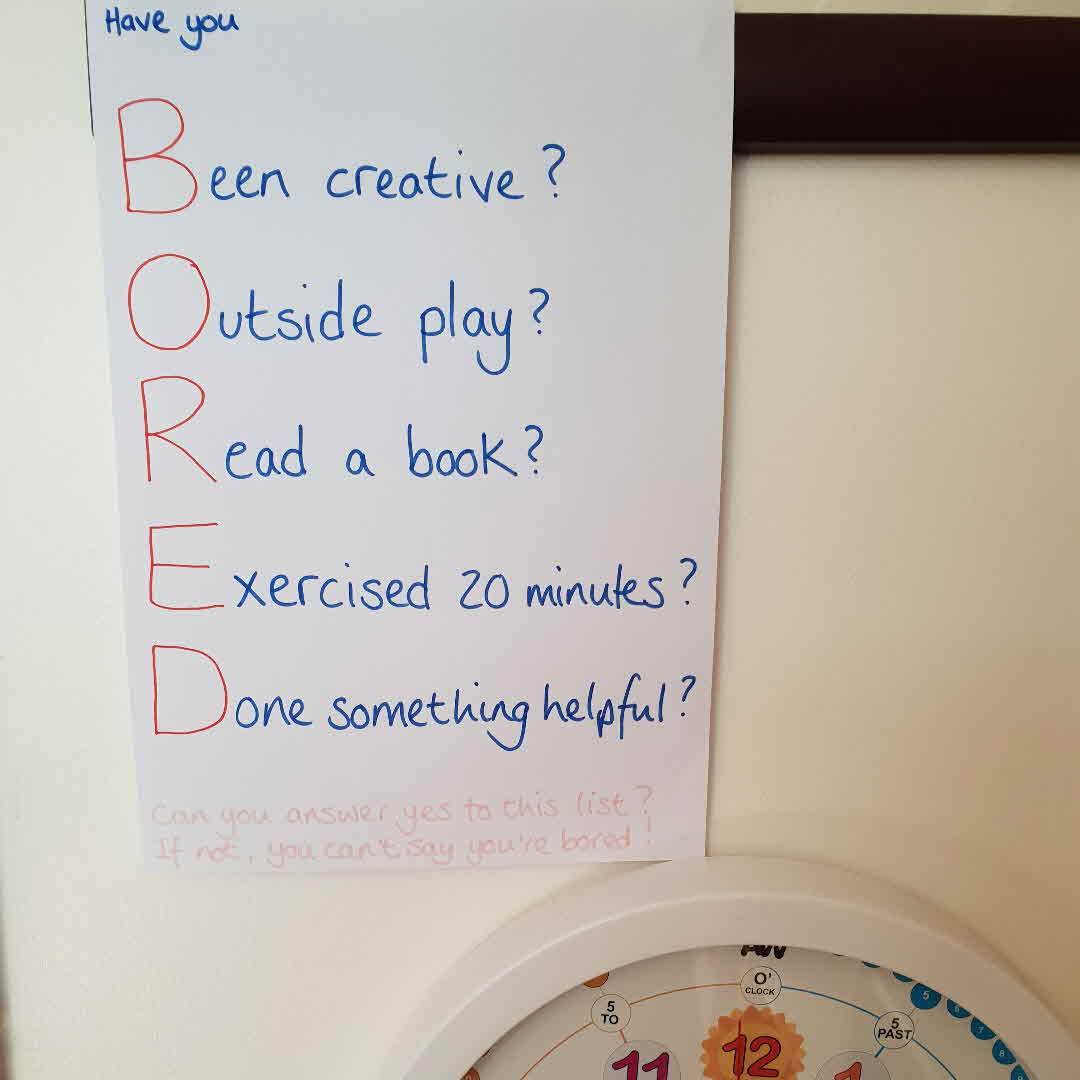 Have you
Been creative?
Outside play?
Read a book?
Exercised 20 minutes?
Done something helpful?
Can you answer yes to this list?
If not, you can't say you're bored!
O'
CLOCK
5
TO
5
PAST
11
12
1
5
6
7
8